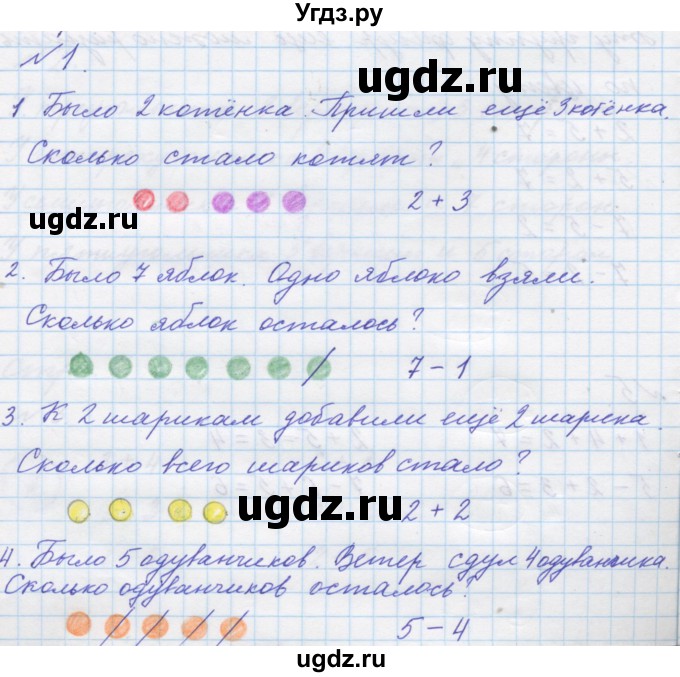 Угдз.ру
№1.
ugdz.ru
1 Было 2 котёнка. Пришли ещё 3 котёнка.
Сколько стало котят?
2 + 3
ugdz.ru
2. Было 7 яблок. Одно яблоко взяли.
Сколько яблок осталось?
7 - 1
3. К 2 шарикам добавили ещё 2 шарика.
Сколько всего шариков стало?
ugdz.ru
2 + 2
4. Было 5 одуванчиков. Ветер сдул 4 одуванчика.
Сколько одуванчиков осталось?
5 - 4
ugdz.ru